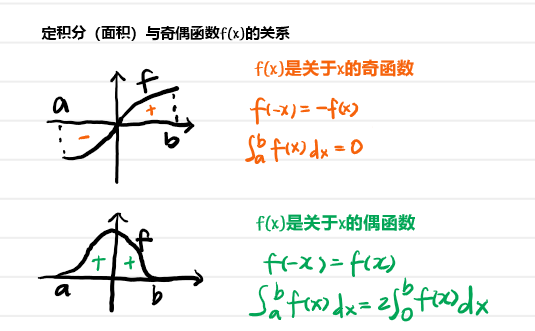 定积分（面积）与奇偶函数f(x)的关系
f(x)是关于x的奇函数
f
a
+
f(-x) = -f(x)
-
b
∫ₐᵇ f(x) dx = 0
f(x)是关于x的偶函数
f
+ +
f(-x) = f(x)
a b
∫ₐᵇ f(x) dx = 2∫₀ᵇ f(x) dx